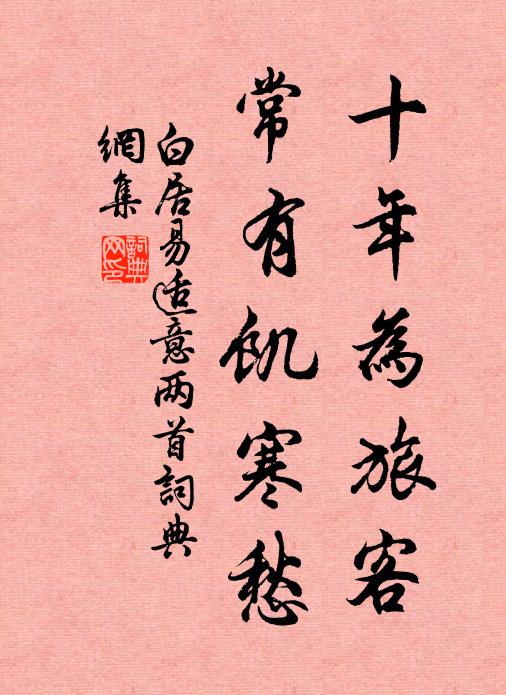 十年為旅客
常有飢寒愁
白居易适意两首詞典
網集
詞典
网印